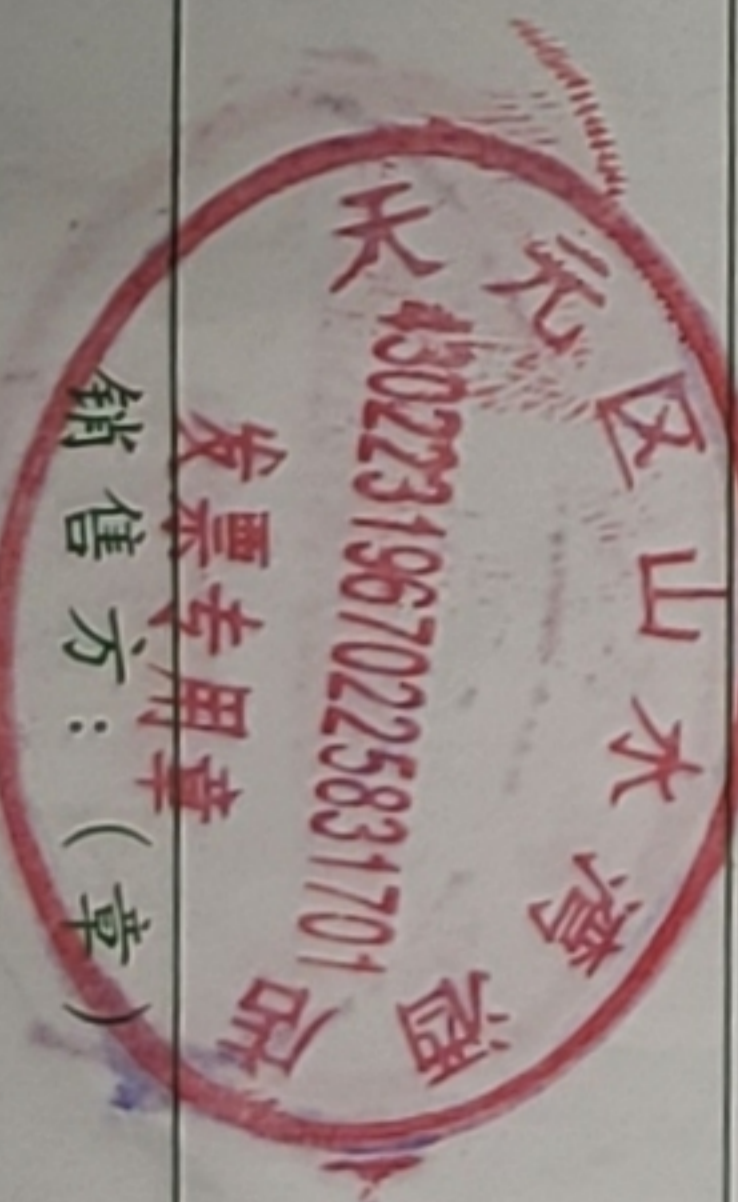 天元区山水湾酒店
43022319670225831701
发票专用章
销售方:(章)